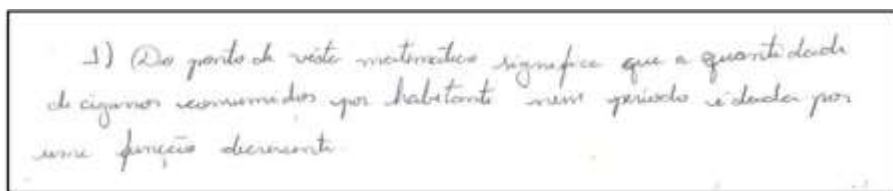 1) Do ponto de vista matemático significa que a quantidade
de cigarros consumidos por habitante nesse período é dada por
uma função decrescente